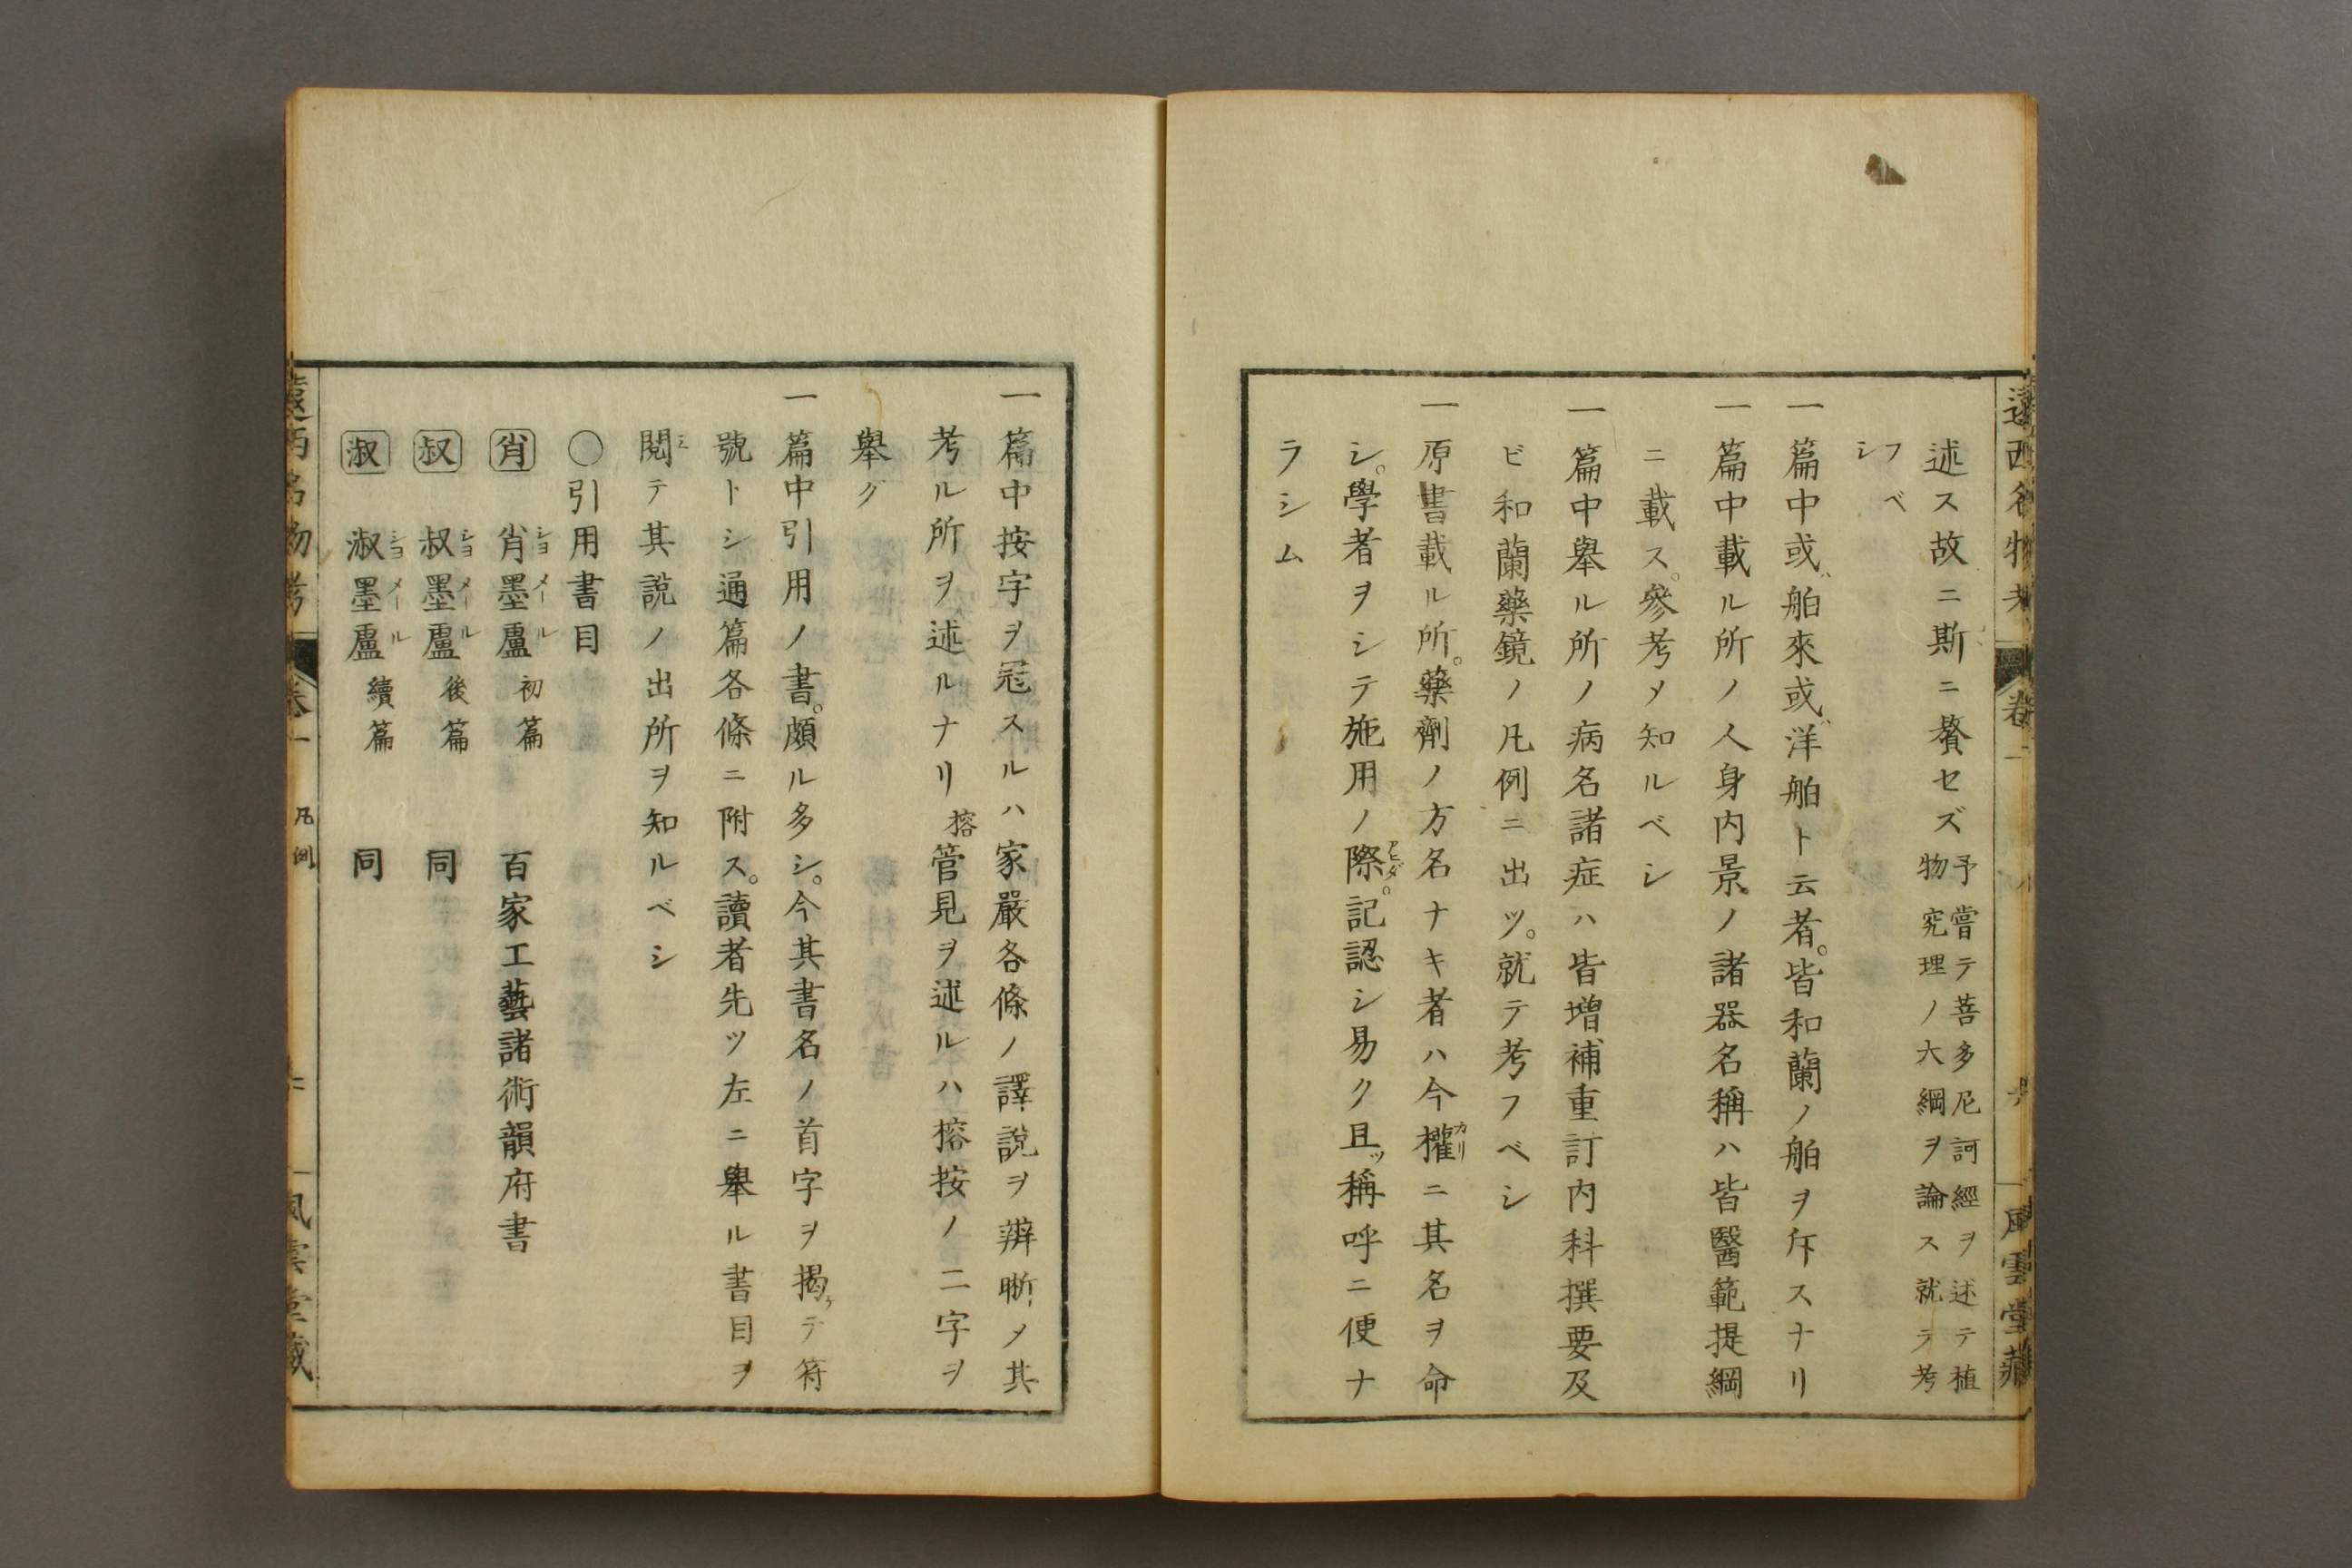 述ス故ニ斯ニ贅セズ予嘗テ菩多尼訶經ヲ述テ植
物究理ノ大綱ヲ論ス就テ考
フベ
シ
一篇中或ハ舶來或ハ洋舶ト云者。皆和蘭ノ舶ヲ斥スナリ
一篇中載ル所ノ人身内景ノ諸器名稱ハ皆醫範提綱
ニ載ス。參考メ知ルベシ
一篇中舉ル所ノ病名諸症ハ皆增補重訂内科撰要及
ビ和蘭藥鏡ノ凡例ニ出ツ。就テ考フベシ
一原書載ル所。藥劑ノ方名ナキ者ハ今權カリニ其名ヲ命
シ。學者ヲシテ施用ノ際アヒダ。記認シ易ク且ツ稱呼ニ便ナ
ラシム
遠西名物考 卷一 風雲堂藏
一篇中按字ヲ冠スルハ家嚴各條ノ譯説ヲ辨晰メ其
考ル所ヲ述ルナリ榕管見ヲ述ルハ榕按ノ二字ヲ
舉グ
一篇中引用ノ書。頗ル多シ。今其書名ノ首字ヲ揭ケテ符
號トシ通篇各條ニ附ス。讀者先ツ左ニ舉ル書目ヲ
閲ミテ其説ノ出所ヲ知ルベシ
〇引用書目
肖 肖墨盧ショメール 初篇 百家工藝諸術韻府書
叔 叔墨盧ショメール 後篇 同
淑 淑墨盧ショメール 續篇 同
遠西名物考 卷一 凡例 風雲堂藏